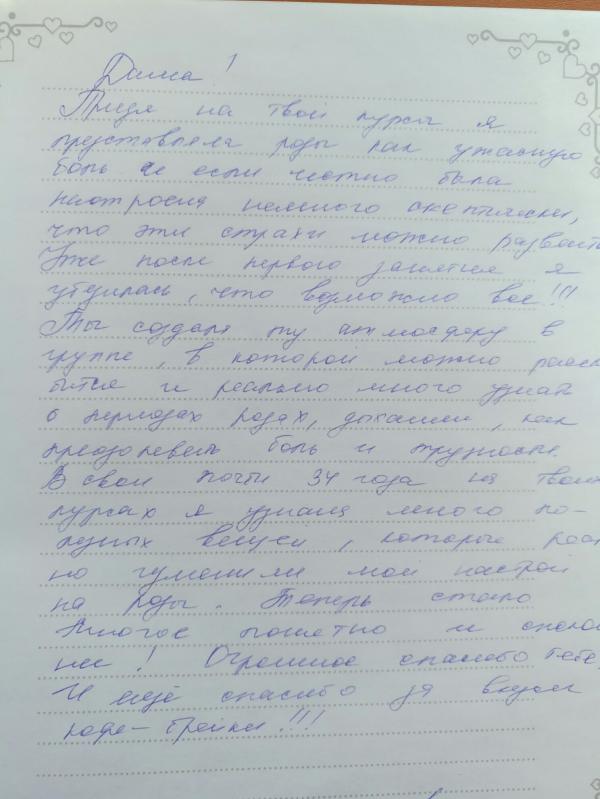 Дима!
Придя на твои курсы я
представляла роды как ужасную
боль и если честно была
настроена немного скептически,
что эти страхи можно развеять
Уже после первого занятия я
убедилась, что возможно все!!!
Ты создала ту атмосферу в
группе, в которой можно рассла
биться и реально много узнать
о периодах родах, дыхании, как
преодолевать боль и трудности.
В свои почти 34 года на твоих
курсах я узнала много по-
лезных вещей, которые реаль
но изменили мой настрой
на роды. Теперь стало
многое понятно и спокой
нее! Огромное спасибо тебе,
И ещё спасибо за
кофе-брейки!!!